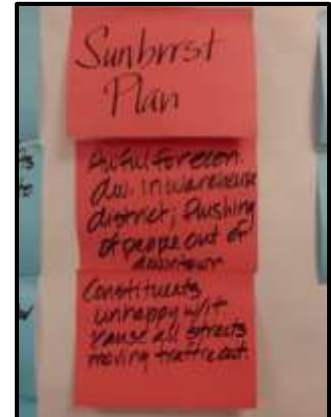 Sunbrrst
Plan
Awful for econ.
dev. in warehouse
district; flushing
of peope out of
downtown
Constituents
unhappy w/it
'cause all streets
moving traffic out.